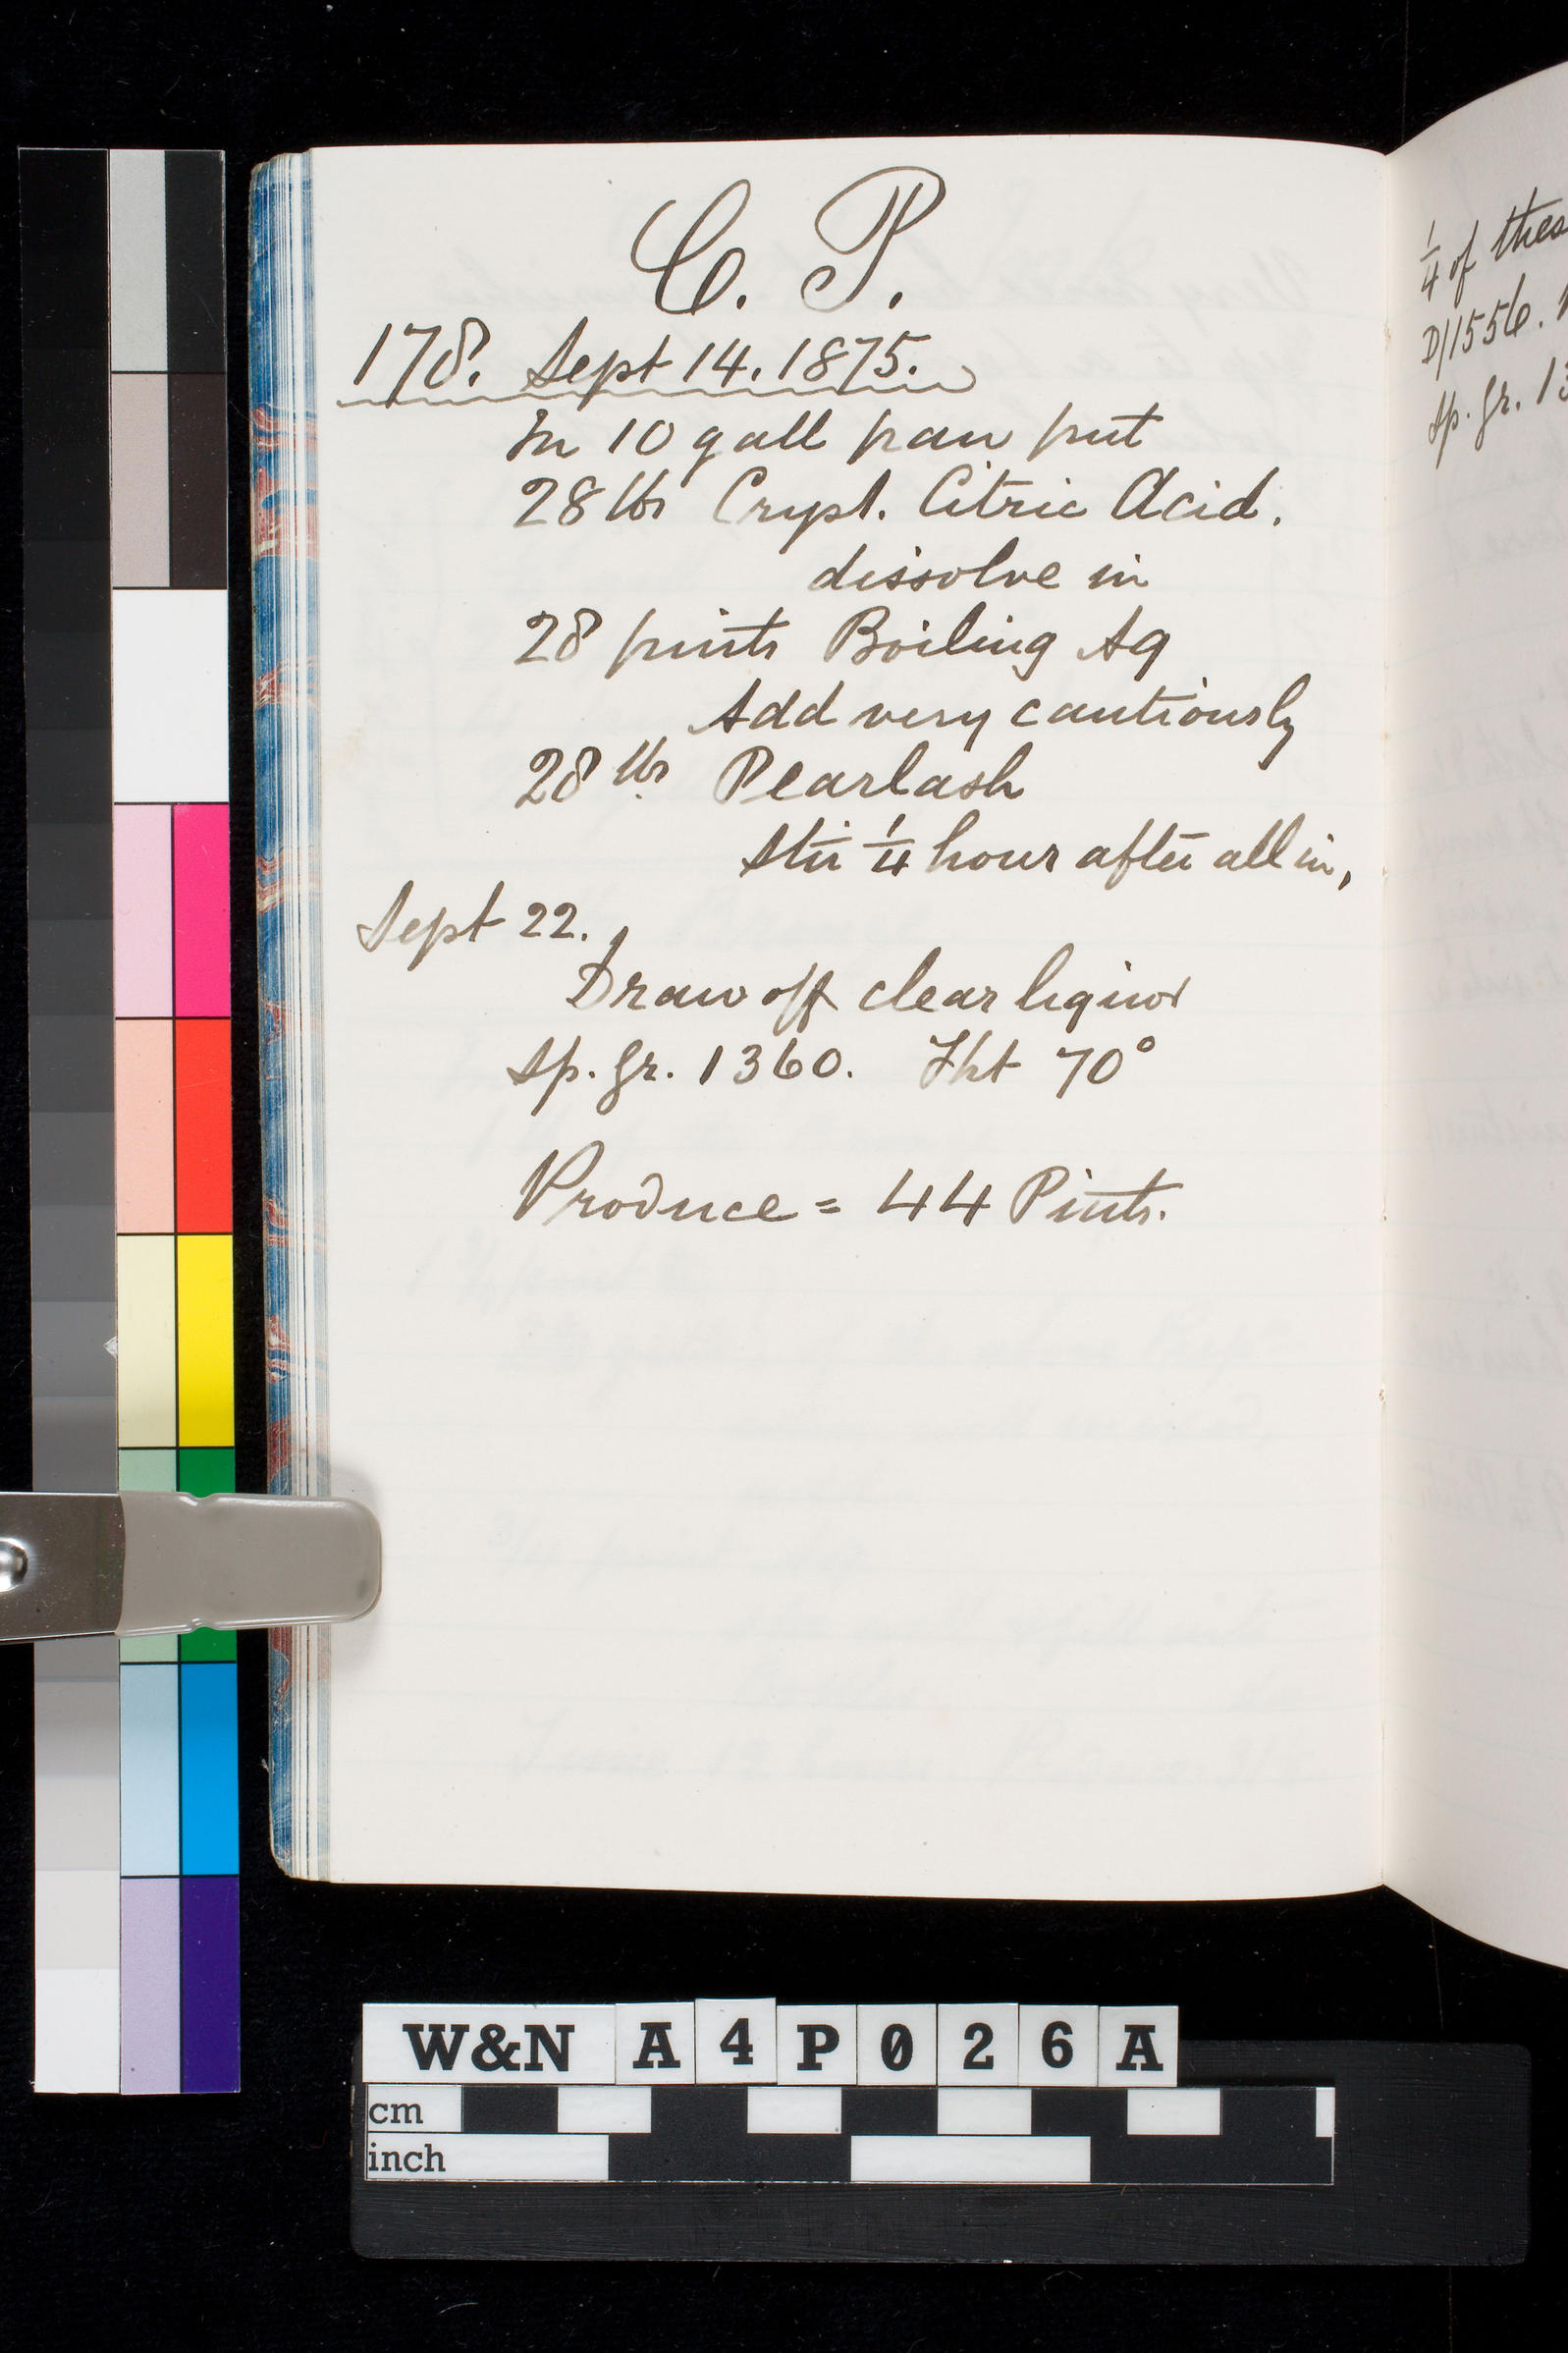 C. P.
178. Sept 14. 1875.
In 10 gall pan put
28 lbs Cryst. Citric Acid.
dissolve in
28 pints Boiling Aq
Add very cautiously
28 lbs Pearlash
Stir 1/4 hour after all in,
Sept 22.
Draw off clear liquor
Sp. Gr. 1360. Tht 70°
Produce = 44 Pints.
1/4 of thes
D/1556.
Sp. Gr. 13
W&N A4P026A
cm
inch